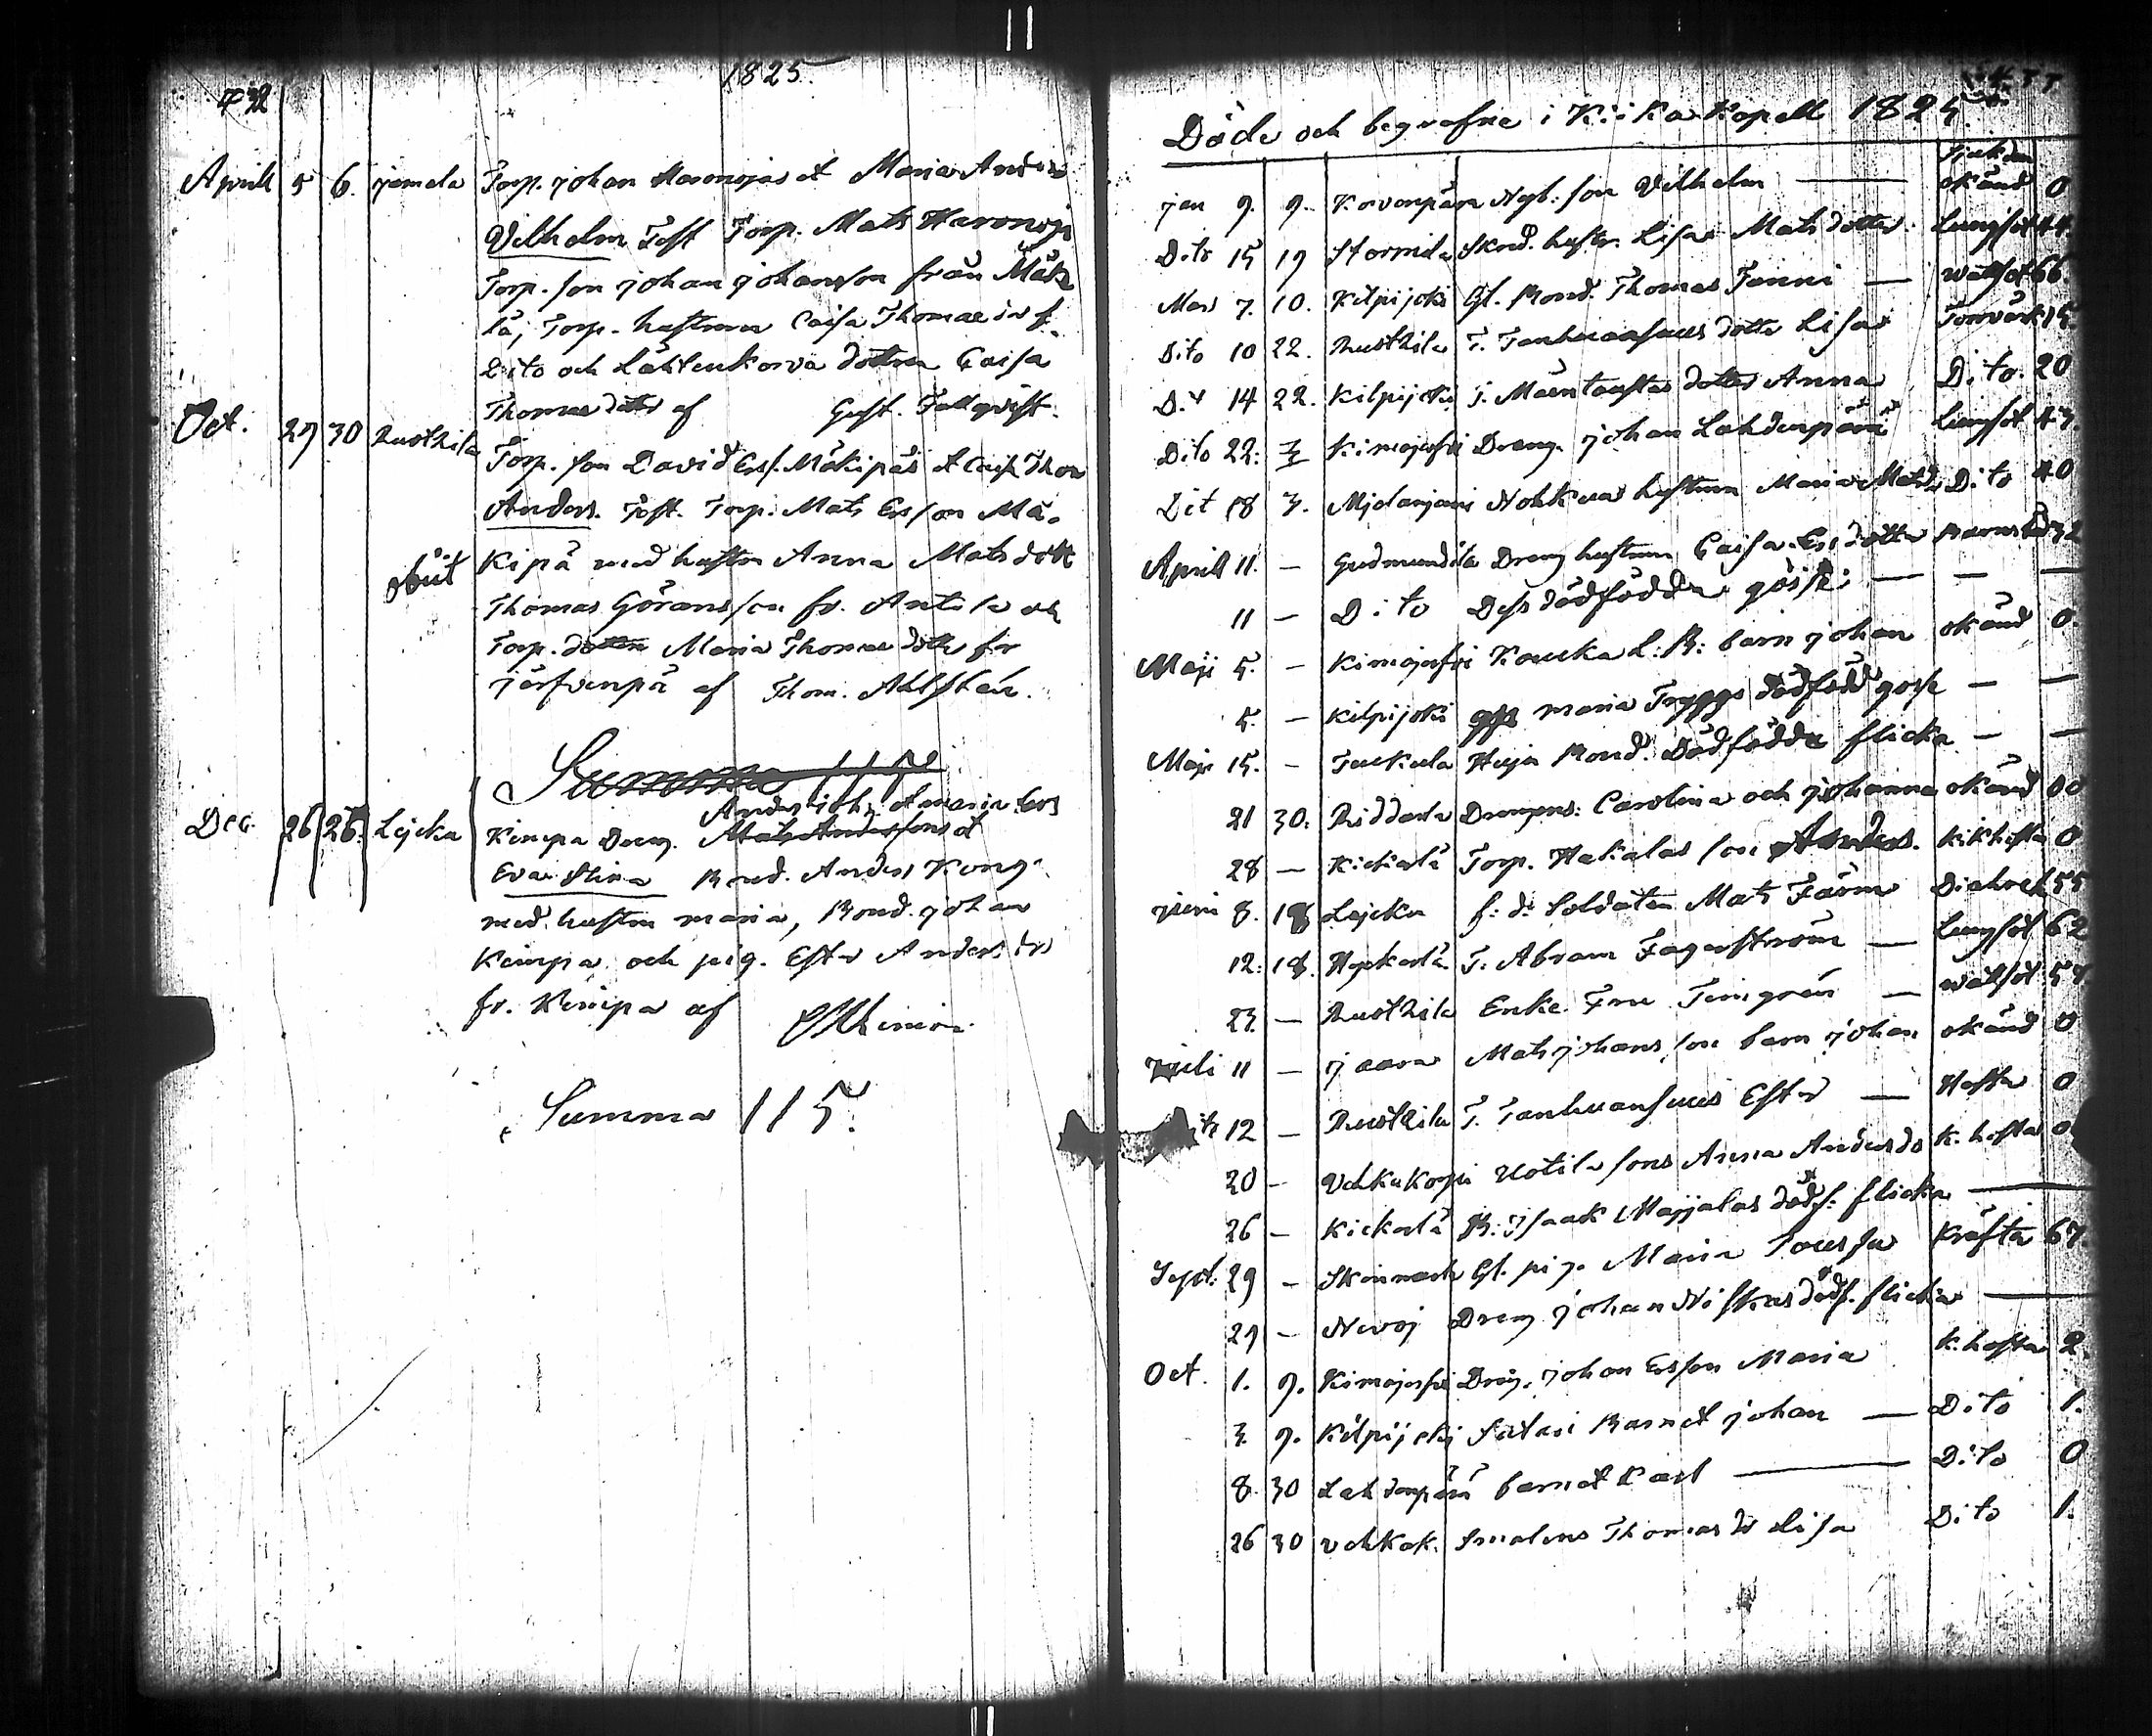 1825.
Aprill 5 6. jamala Torp. johan Haronojas et Maria Anders
Vilhelm Test Torp. Mats Haronoja
Torp. son johan johansson från Mäk
lä, Torp. hustrun Caisa Thomae dr f.
Dito och Lähtenkorva dottren Caisa
Thomas dotter af Gust. Fallqvist.
Oct. 29 30 Rusthila Torp. son David Ers. Mäkipäs et Caisa Thom
Anders. Test. Torp. Mats Ersson Mä-
obiit kipä med hustru Anna Mats dott
Thomas Göransson fr. Antila och
Torp. dottren Maria Thomae dotter fr
järfvenpä af Thom. Ahlstén.
Summa 115
Anders joh. et maria Ers
Dec. 26 26. Lejcka Kinipa Dreng. Mats Anderssons et
Eva Stina Bond. Anders Kong
med hustru maria, Bond. johan
Kinipa och pig. Ester Anders dr
fr. Kinipa af
Summa 115.
Döde och begrafne i Kiika Kapell 1825
Sjukdom
jan 9. 9. Korvenpära Nyb. son Vilhelm — okänd 0
Dito 15 19 Stormila Sknd. hustr. Lisa Mats dotter Lungsot 44.
Mars 7. 10. Kilpijoki Gl. Bond. Thomas Fanni — watsot 66
Dito 10 22. Rusthila T. Tanhuansuus dotter Lisa Torrvärk 15.
D.o 14 22. Kilpijoki T. Mäentaustas dotter Anna Dito. 20
Dito 22: 3 Kimajasfri Dreng. johan Lahdenpärä Lungsot 43.
Dit 18 3. Mjolarjani Nohkua hustrun Maria Matsdr Dito 40
Aprill 11. — Gudmundila Dreng hustrun Caisa Ers dotter Barnsbörd 32
11 — Dito Dess dödfödda gosse: — — —
Maji 5. — Kimajasfri Kouka L: B: barn johan okänd 0.
5. — Kilpijoki maria Tryggs dödfödd gosse — —
Maji 15. — Tuckula Huja Bond. Dödfödda flicka — —
21 30. Riddarla Drengens: Carolina och johanna okänd 00
28 — Kickarlä Torp. Hakalas son Anders. kikhosta 0
juni 8. 18 Lejcka f: d: Soldaten Mats Färm Diahrek 55
12: 18. Hyrkerlä T. Abram Fagerström — Lungsot 62
23. — Rusthila Enke Fru Timgrén — watsot 57.
juli 11 — jaara Mats johans son barn johan okänd 0
Dito 12 — Rusthila T. Tanhuansuus Ester — Hosta 0
20 — Vehkakorpi Uotila sons Anna Anders dr K. hosta 0
26 — Kickerlä B: Isaak Majjalas dödf. flicka —
Sept. 29 — Skinnarla Gl. pig. Maria Sousju Kräfta 67.
29 — Novoj Dreng johan Niskas dödf. flicka —
Oct. 1. 9. Kimajasfri Dreng. johan Ersson Maria K. hosta 2.
3. 9. Kilpijoki Satari Barnet johan — Dito 1.
8. 30 Lahdenpärä barnet Karl — Dito 0
26 30 vehkak. Smalens Thomas dr Lisa Dito 1.